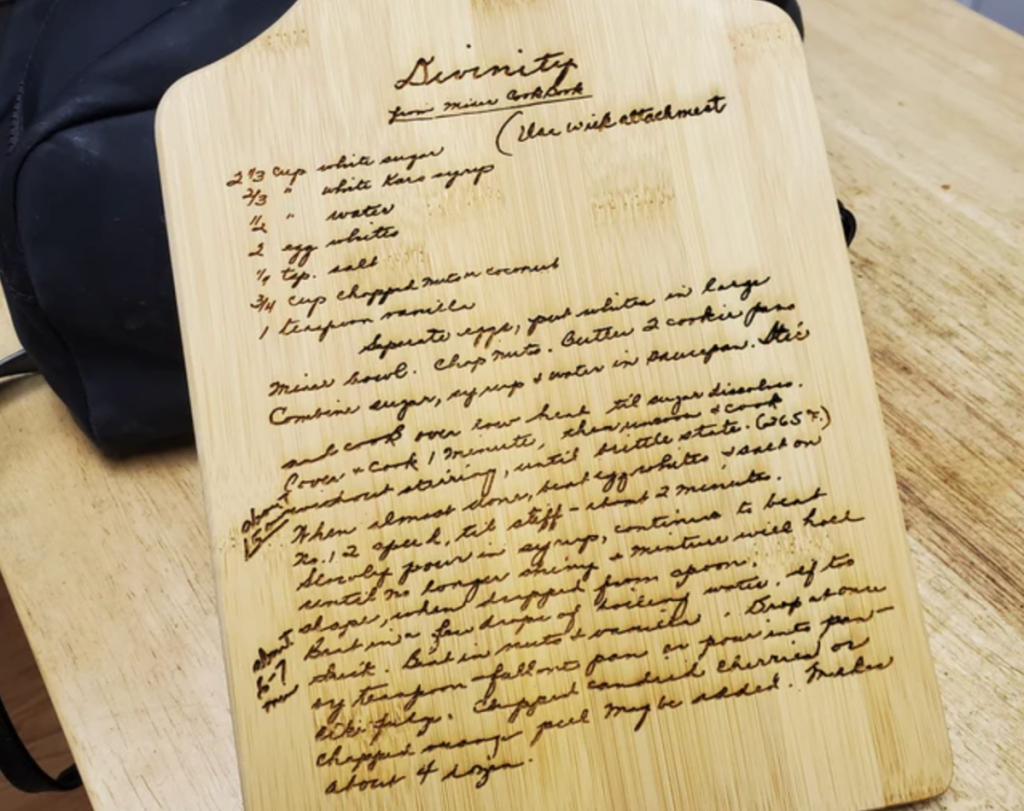 Divinity
from Mixer Cookbook
(Use wisk attachment
2 1/3 cup white sugar
2/3 " white Karo syrup
1/2 " water
2 egg whites
1/4 tsp. salt
3/4 cup chopped nuts or coconut
1 teaspoon vanilla
Seperate eggs, put whites in large
mixer bowl. Chop nuts. Butter 2 cookie pans
Combine sugar, syrup & water in saucepan. Stir
and cook over low heat til sugar dissolves.
Cover & cook 1 minute, then uncover & cook
without stirring, until brittle state. (265°F.)
about
15
When almost done, beat egg whites & salt on
No. 12 speed, til stiff - about 2 minutes.
Slowly pour in syrup, continue to beat
until no longer shiny & mixture will hold
shape, when dropped from spoon.
about
6-7
min
Beat in a few drops of boiling water, if to
thick. Beat in nuts & vanilla. Drop at once
by teaspoon fall on pan or pour into pan -
like fudge. Chopped candied cherries or
chopped orange peel may be added. Makes
about 4 dozen.